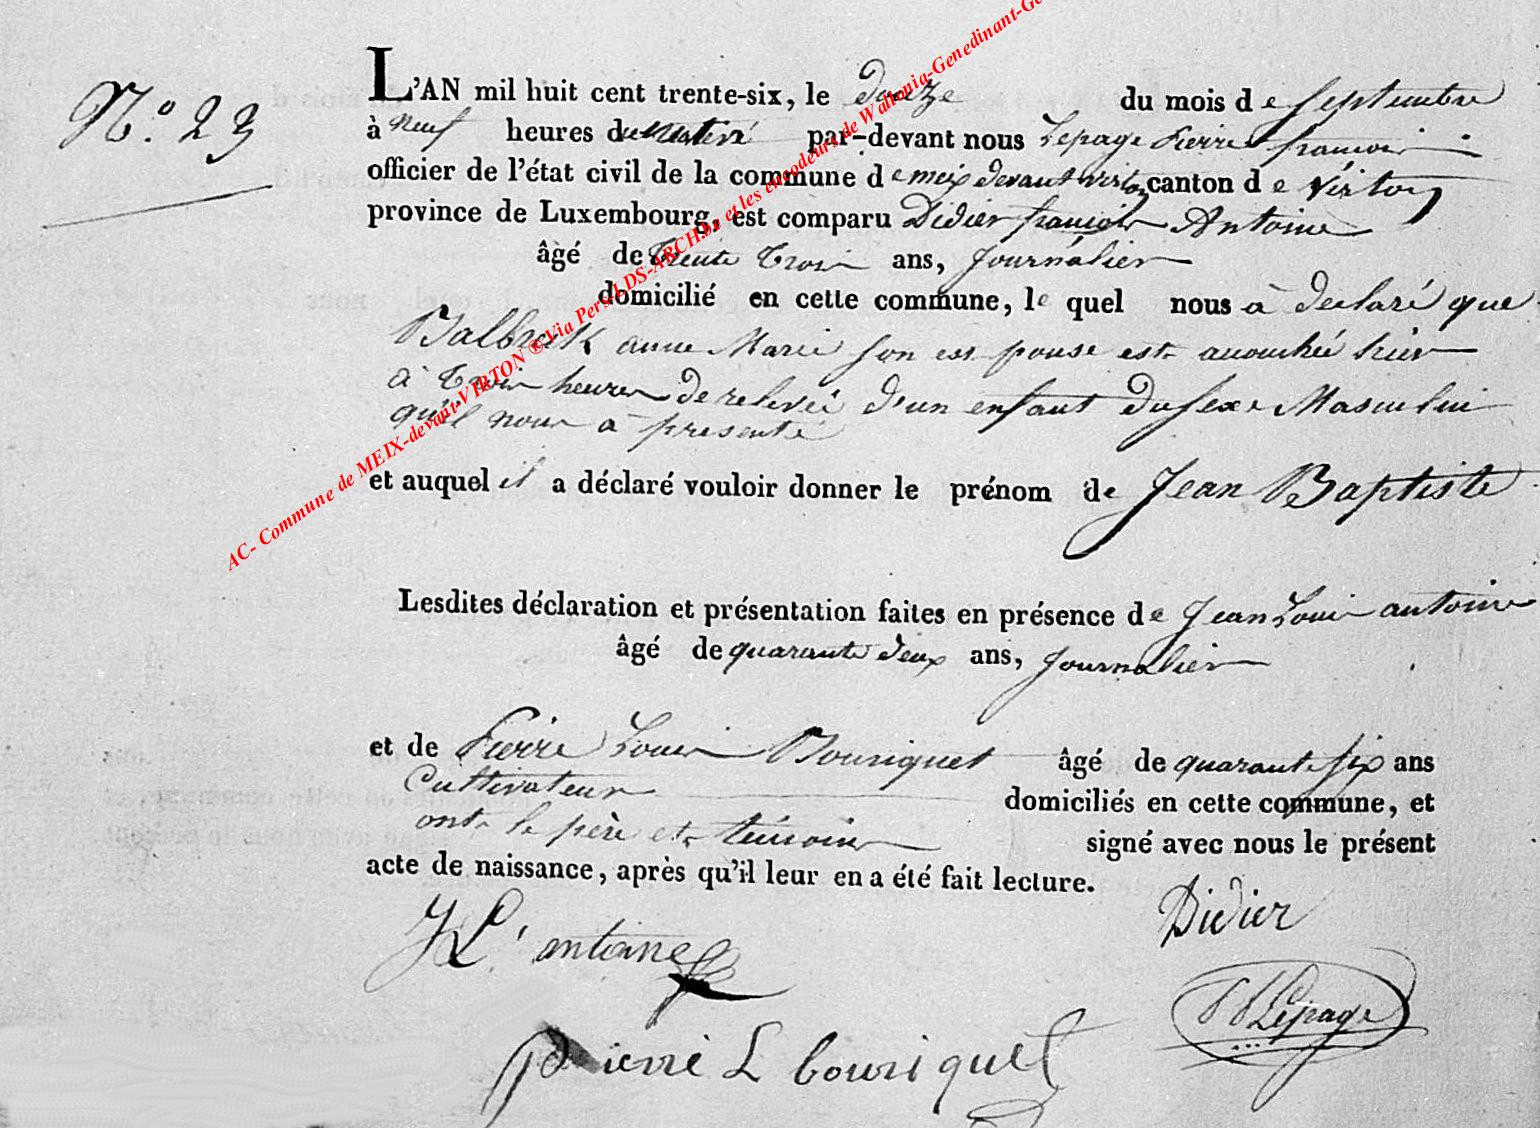 N.° 23
L'AN mil huit cent trente-six, le douze du mois de septembre
à neuf heures du matin par-devant nous Lepage Pierre françois
officier de l'état civil de la commune de meix devant virton canton de Virton
province de Luxembourg, est comparu Didier françois Antoine
âgé de trente trois ans, journalier
domicilié en cette commune, le quel nous à declaré que
Balbeck anne Marie son es pouse est acouchée hier
à trois heures de relevée d'un enfant du sexe Masculin
qu'il nous à presenté
et auquel il a déclaré vouloir donner le prénom de Jean Baptiste
Lesdites déclaration et présentation faites en présence de Jean Louis antoine
âgé de quarante deux ans, journalier
et de Pierre Louis Bouriquet âgé de quarante six ans
Cultivateur domiciliés en cette commune, et
ont le père et témoins signé avec nous le présent
acte de naissance, après qu'il leur en a été fait lecture.
J L antoine Didier
Lepage
pierre L bouriquet
AC- Commune de MEIX-devant-VIRTON ® Via Pers-LDS-ARCH.be et les encodeurs de Wallonia-Genedinant-Ge